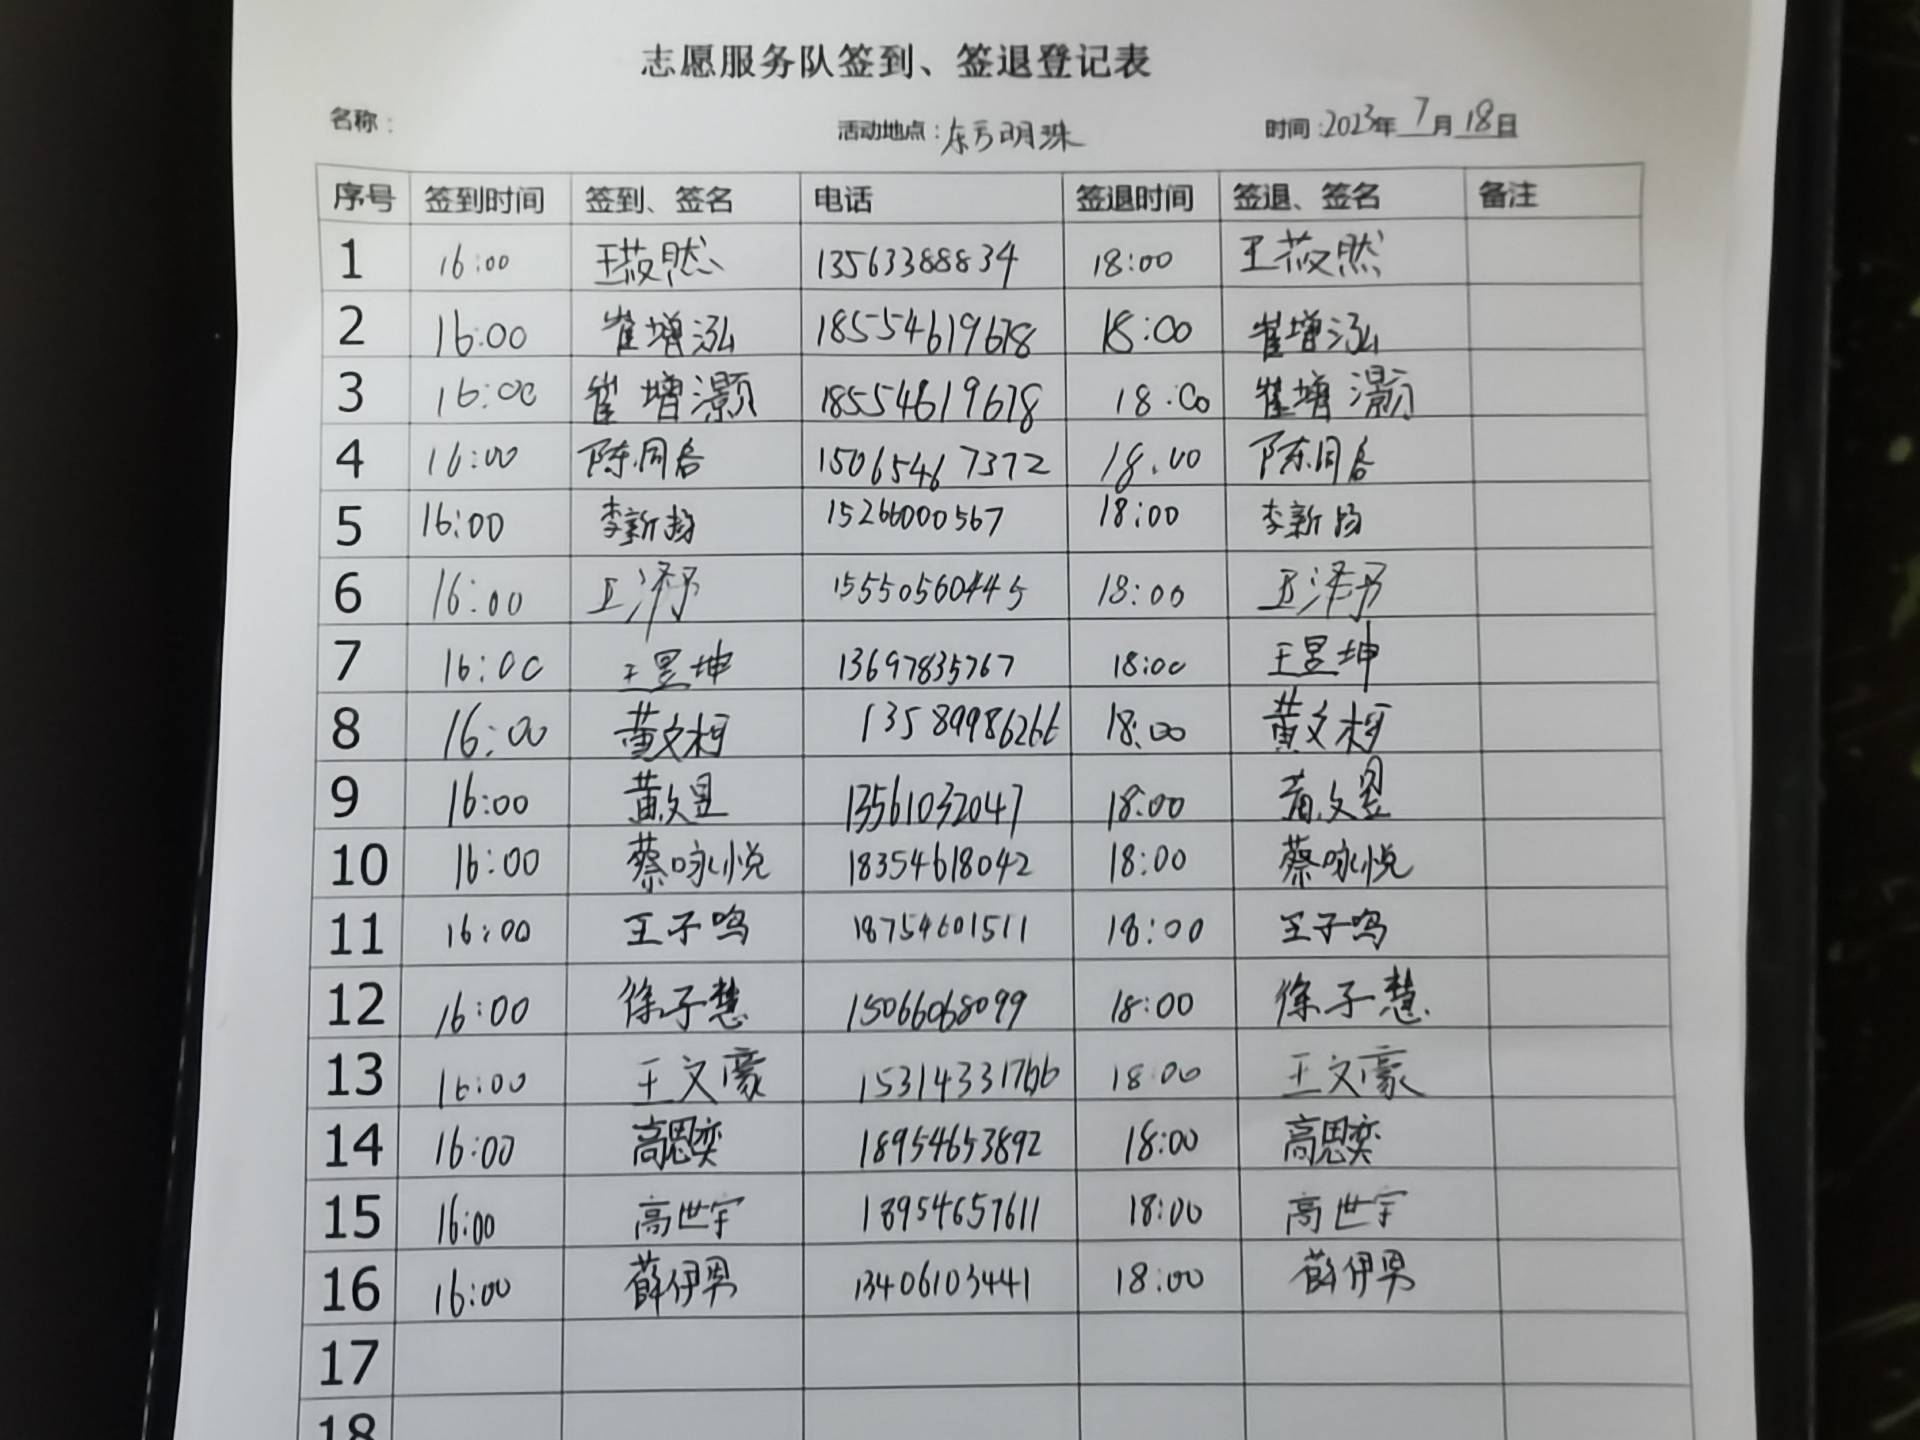 志愿服务队签到、签退登记表
名称： 活动地点：东方明珠 时间：2023年 7月 18日
序号 签到时间 签到、签名 电话 签退时间 签退、签名 备注
1 16:00 王莜然 13563388834 18:00 王莜然
2 16:00 崔增泓 18554619678 18:00 崔增泓
3 16:00 崔增灏 18554619678 18:00 崔增灏
4 16:00 陈同名 15065467372 18:00 陈同名
5 16:00 李新扬 15266000567 18:00 李新扬
6 16:00 王泽予 15550560445 18:00 王泽予
7 16:00 王昱坤 13697835767 18:00 王昱坤
8 16:00 黄文柯 13589986266 18:00 黄文柯
9 16:00 黄文昱 13561032047 18:00 黄文昱
10 16:00 蔡咏悦 18354618042 18:00 蔡咏悦
11 16:00 王子鸣 18754601511 18:00 王子鸣
12 16:00 徐子慧 15066068099 18:00 徐子慧
13 16:00 王文豪 15314331766 18:00 王文豪
14 16:00 高恩奕 18954653892 18:00 高恩奕
15 16:00 高世宇 18954657611 18:00 高世宇
16 16:00 薛伊男 13406103441 18:00 薛伊男
17
18